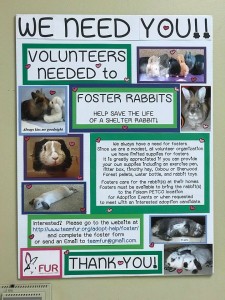 WE NEED YOU!!
VOLUNTEERS
NEEDED to
FOSTER RABBITS
HELP SAVE THE LIFE
OF A SHELTER RABBIT!
Always kiss me goodnight
We always have a need for fosters
Since we are a modest, all volunteer organization
we have limited supplies for fosters
It is greatly appreciated if you can provide
your own supplies including an exercise pen,
litter box, timothy hay, Oxbow or Sherwood
Forest pellets, water bottle, and rabbit toys.
Fosters care for the rabbit(s) in their homes.
Fosters must be available to bring the rabbit(s)
to the Folsom PETCO location
for Adoption Events or when requested
to meet with an interested adoption candidate.
Interested? Please go to the website at
http://www.teamfur.org/adopt-help/foster/
and complete the foster form
or send an Email to teamfur@gmail.com.
FUR
THANK YOU!